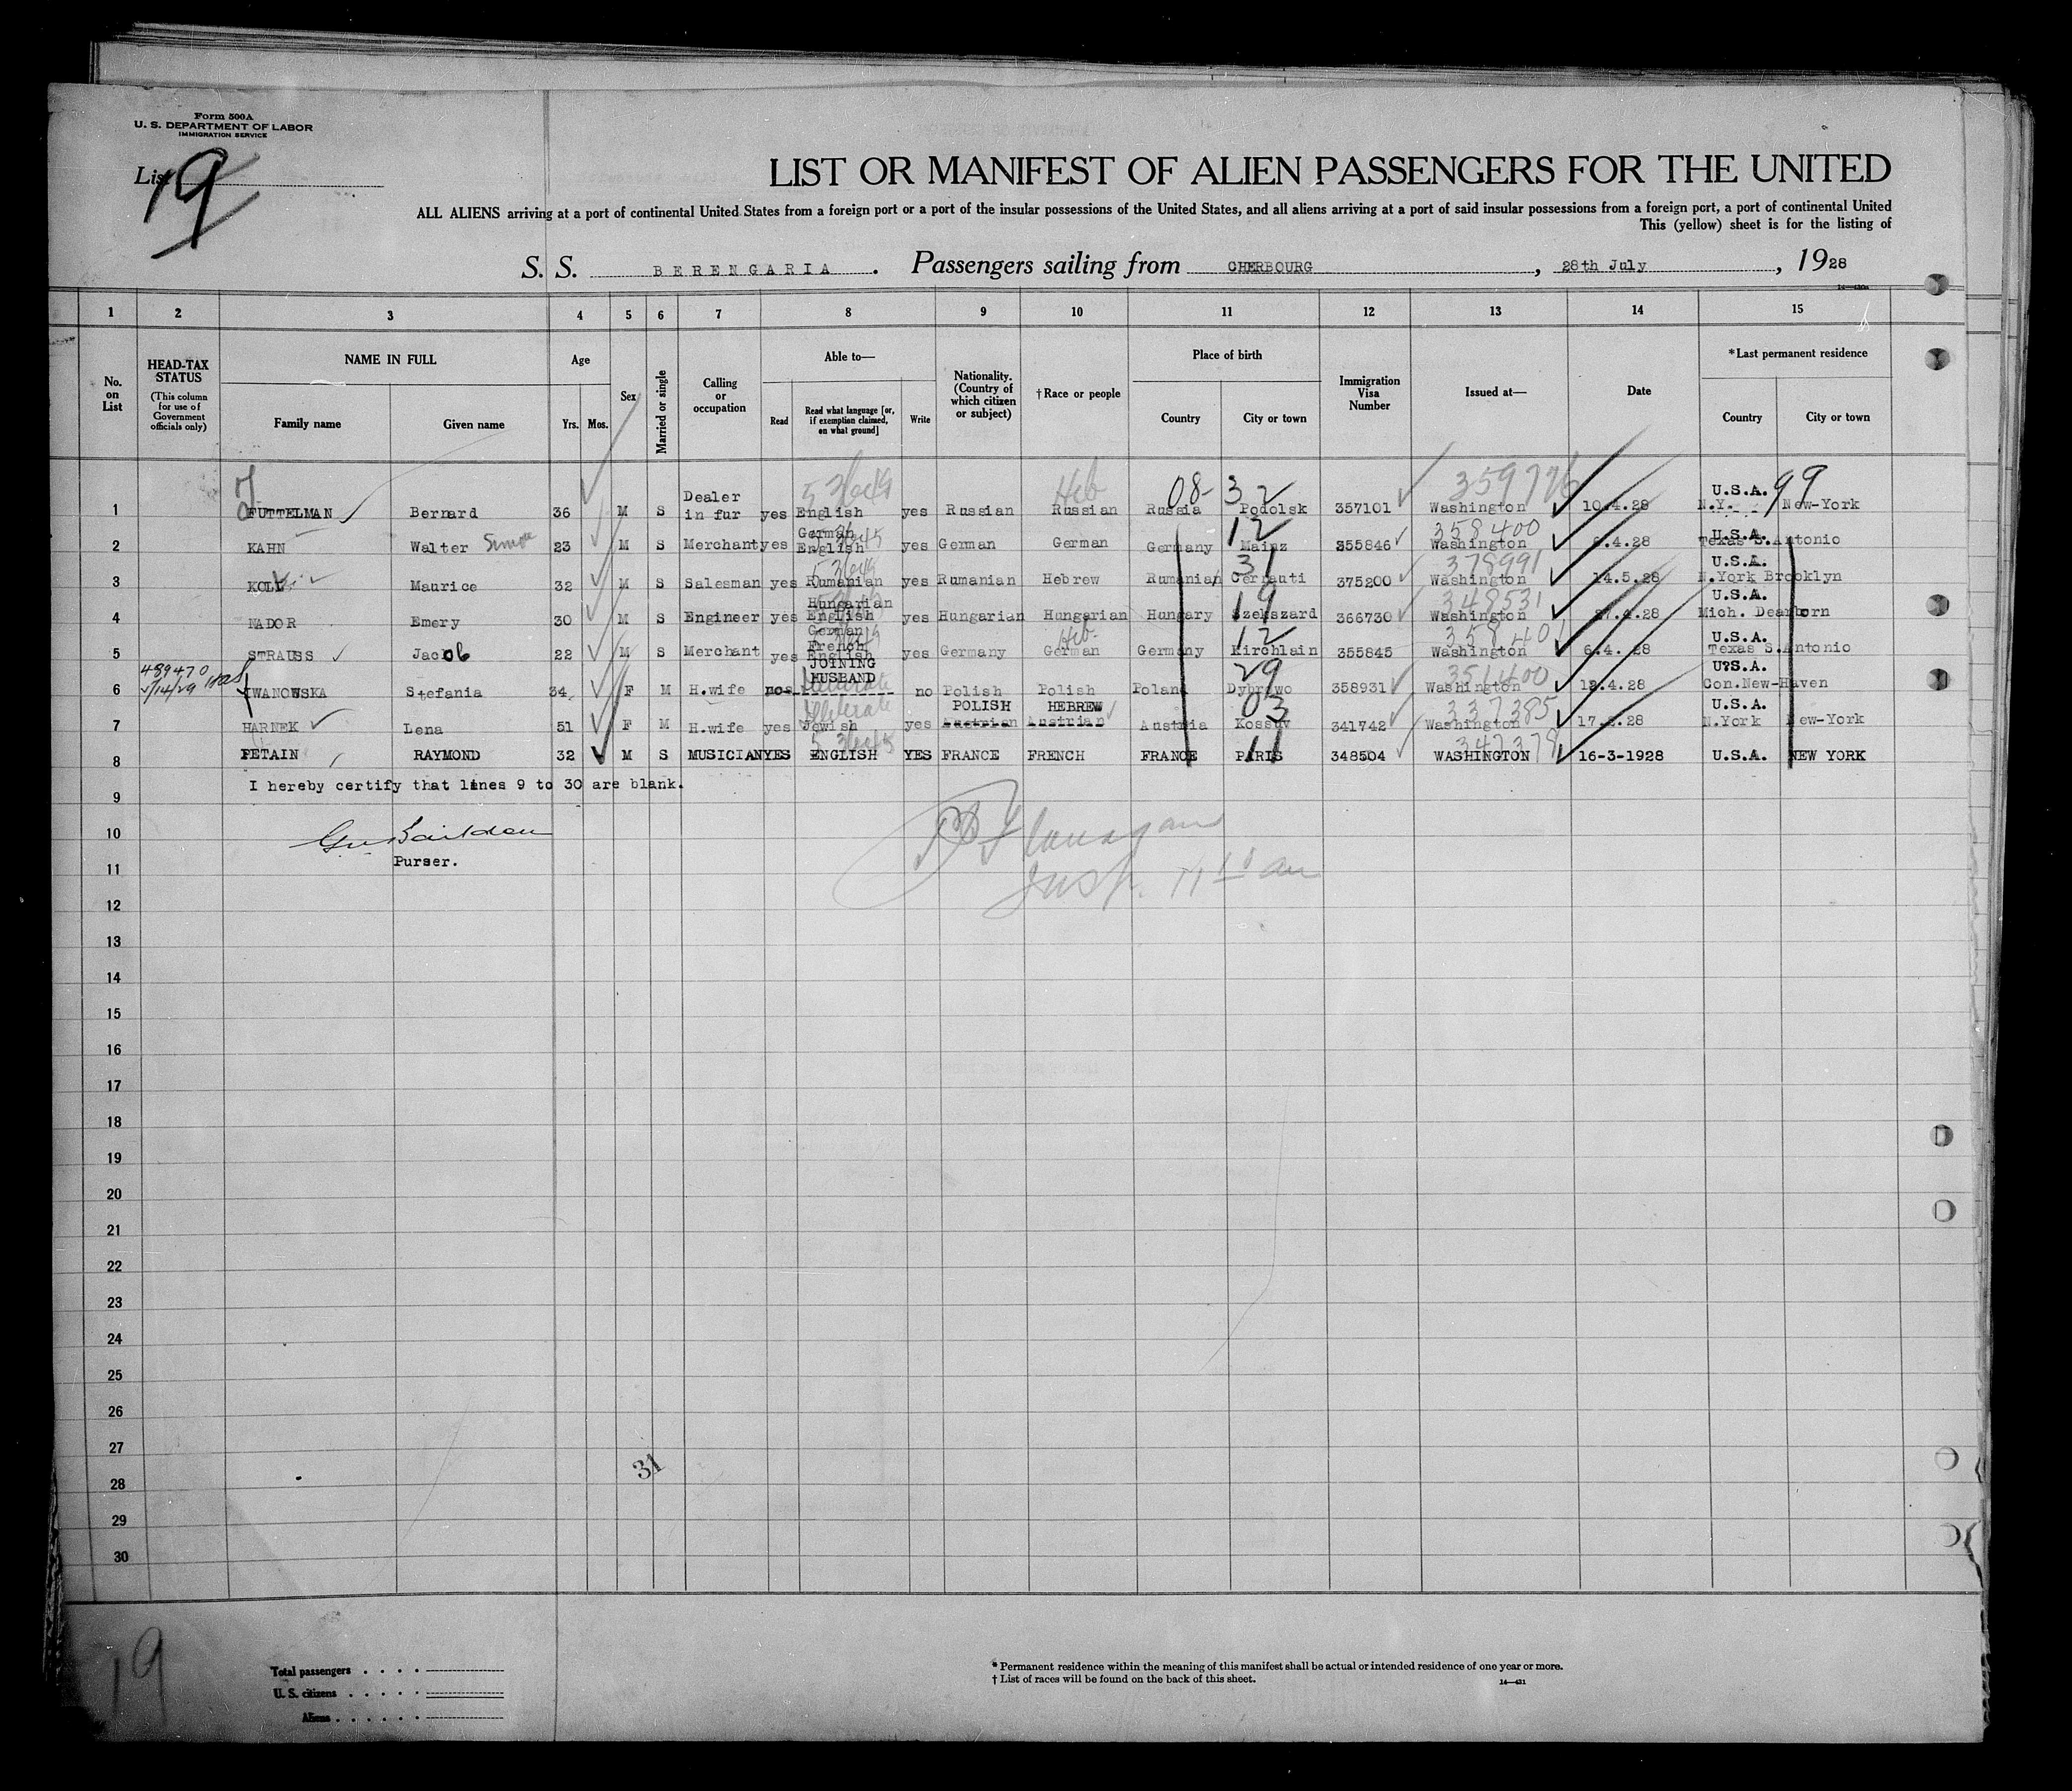 Form 500A
U. S. DEPARTMENT OF LABOR
IMMIGRATION SERVICE
List 19
LIST OR MANIFEST OF ALIEN PASSENGERS FOR THE UNITED
ALL ALIENS arriving at a port of continental United States from a foreign port or a port of the insular possessions of the United States, and all aliens arriving at a port of said insular possessions from a foreign port, a port of continental United
This (yellow) sheet is for the listing of
S. S. BERENGARIA . Passengers sailing from CHERBOURG , 28th July , 1928
1 2 3 4 5 6 7 8 9 10 11 12 13 14 15
No. on List
HEAD-TAX STATUS
(This column for use of Government officials only)
NAME IN FULL
Family name Given name
Age
Yrs. Mos.
Sex
Married or single
Calling or occupation
Able to—
Read
Read what language [or, if exemption claimed, on what ground]
Write
Nationality. (Country of which citizen or subject)
† Race or people
Place of birth
Country City or town
Immigration Visa Number
Issued at—
Date
*Last permanent residence
Country City or town
1 FUTTELMAN Bernard 36 M S Dealer in fur yes English yes Russian Russian Heb Russia Podolsk 08-32 357101 359776 Washington 10.4.28 U.S.A. N.Y. New-York 99
2 KAHN Walter Simon 23 M S Merchant yes German English yes German German Germany Mainz 12 355846 358400 Washington 6.4.28 U.S.A. Texas S.Antonio
3 Maurice 32 M S Salesman yes Rumanian yes Rumanian Hebrew Rumanian Cernauti 31 375200 378991 Washington 14.5.28 U.S.A. N.York Brooklyn
4 NADOR Emery 30 M S Engineer yes Hungarian English yes Hungarian Hungarian Hungary Szekszard 19 366730 348531 Washington 27.4.28 U.S.A. Mich. Dearborn
5 STRAUSS Jacob 22 M S Merchant yes German French English yes Germany German Heb. Germany Kirchlain 12 355845 358401 Washington 6.4.28 U.S.A. Texas S.Antonio
489470
5/14/29
6 IWANOWSKA Stefania 34 F M H.wife no JOINING HUSBAND Illiterate no Polish Polish Poland 29 358931 351400 Washington 12.4.28 U?S.A. Con.New-Haven
7 HARNEK Lena 51 F M H.wife yes Illiterate Jewish yes POLISH Austrian HEBREW Austrian Austria Kossuv 03 341742 337385 Washington 17. .28 U.S.A. N.York New-York
8 PETAIN RAYMOND 32 M S MUSICIAN YES ENGLISH YES FRANCE FRENCH FRANCE PARIS 11 348504 347378 WASHINGTON 16-3-1928 U.S.A. NEW YORK
I hereby certify that lines 9 to 30 are blank.
9
10
Purser.
Flanagan
Insp.
11
12
13
14
15
16
17
18
19
20
21
22
23
24
25
26
27
31
28
29
30
19
Total passengers
U. S. citizens
Aliens
* Permanent residence within the meaning of this manifest shall be actual or intended residence of one year or more.
† List of races will be found on the back of this sheet.
14—421